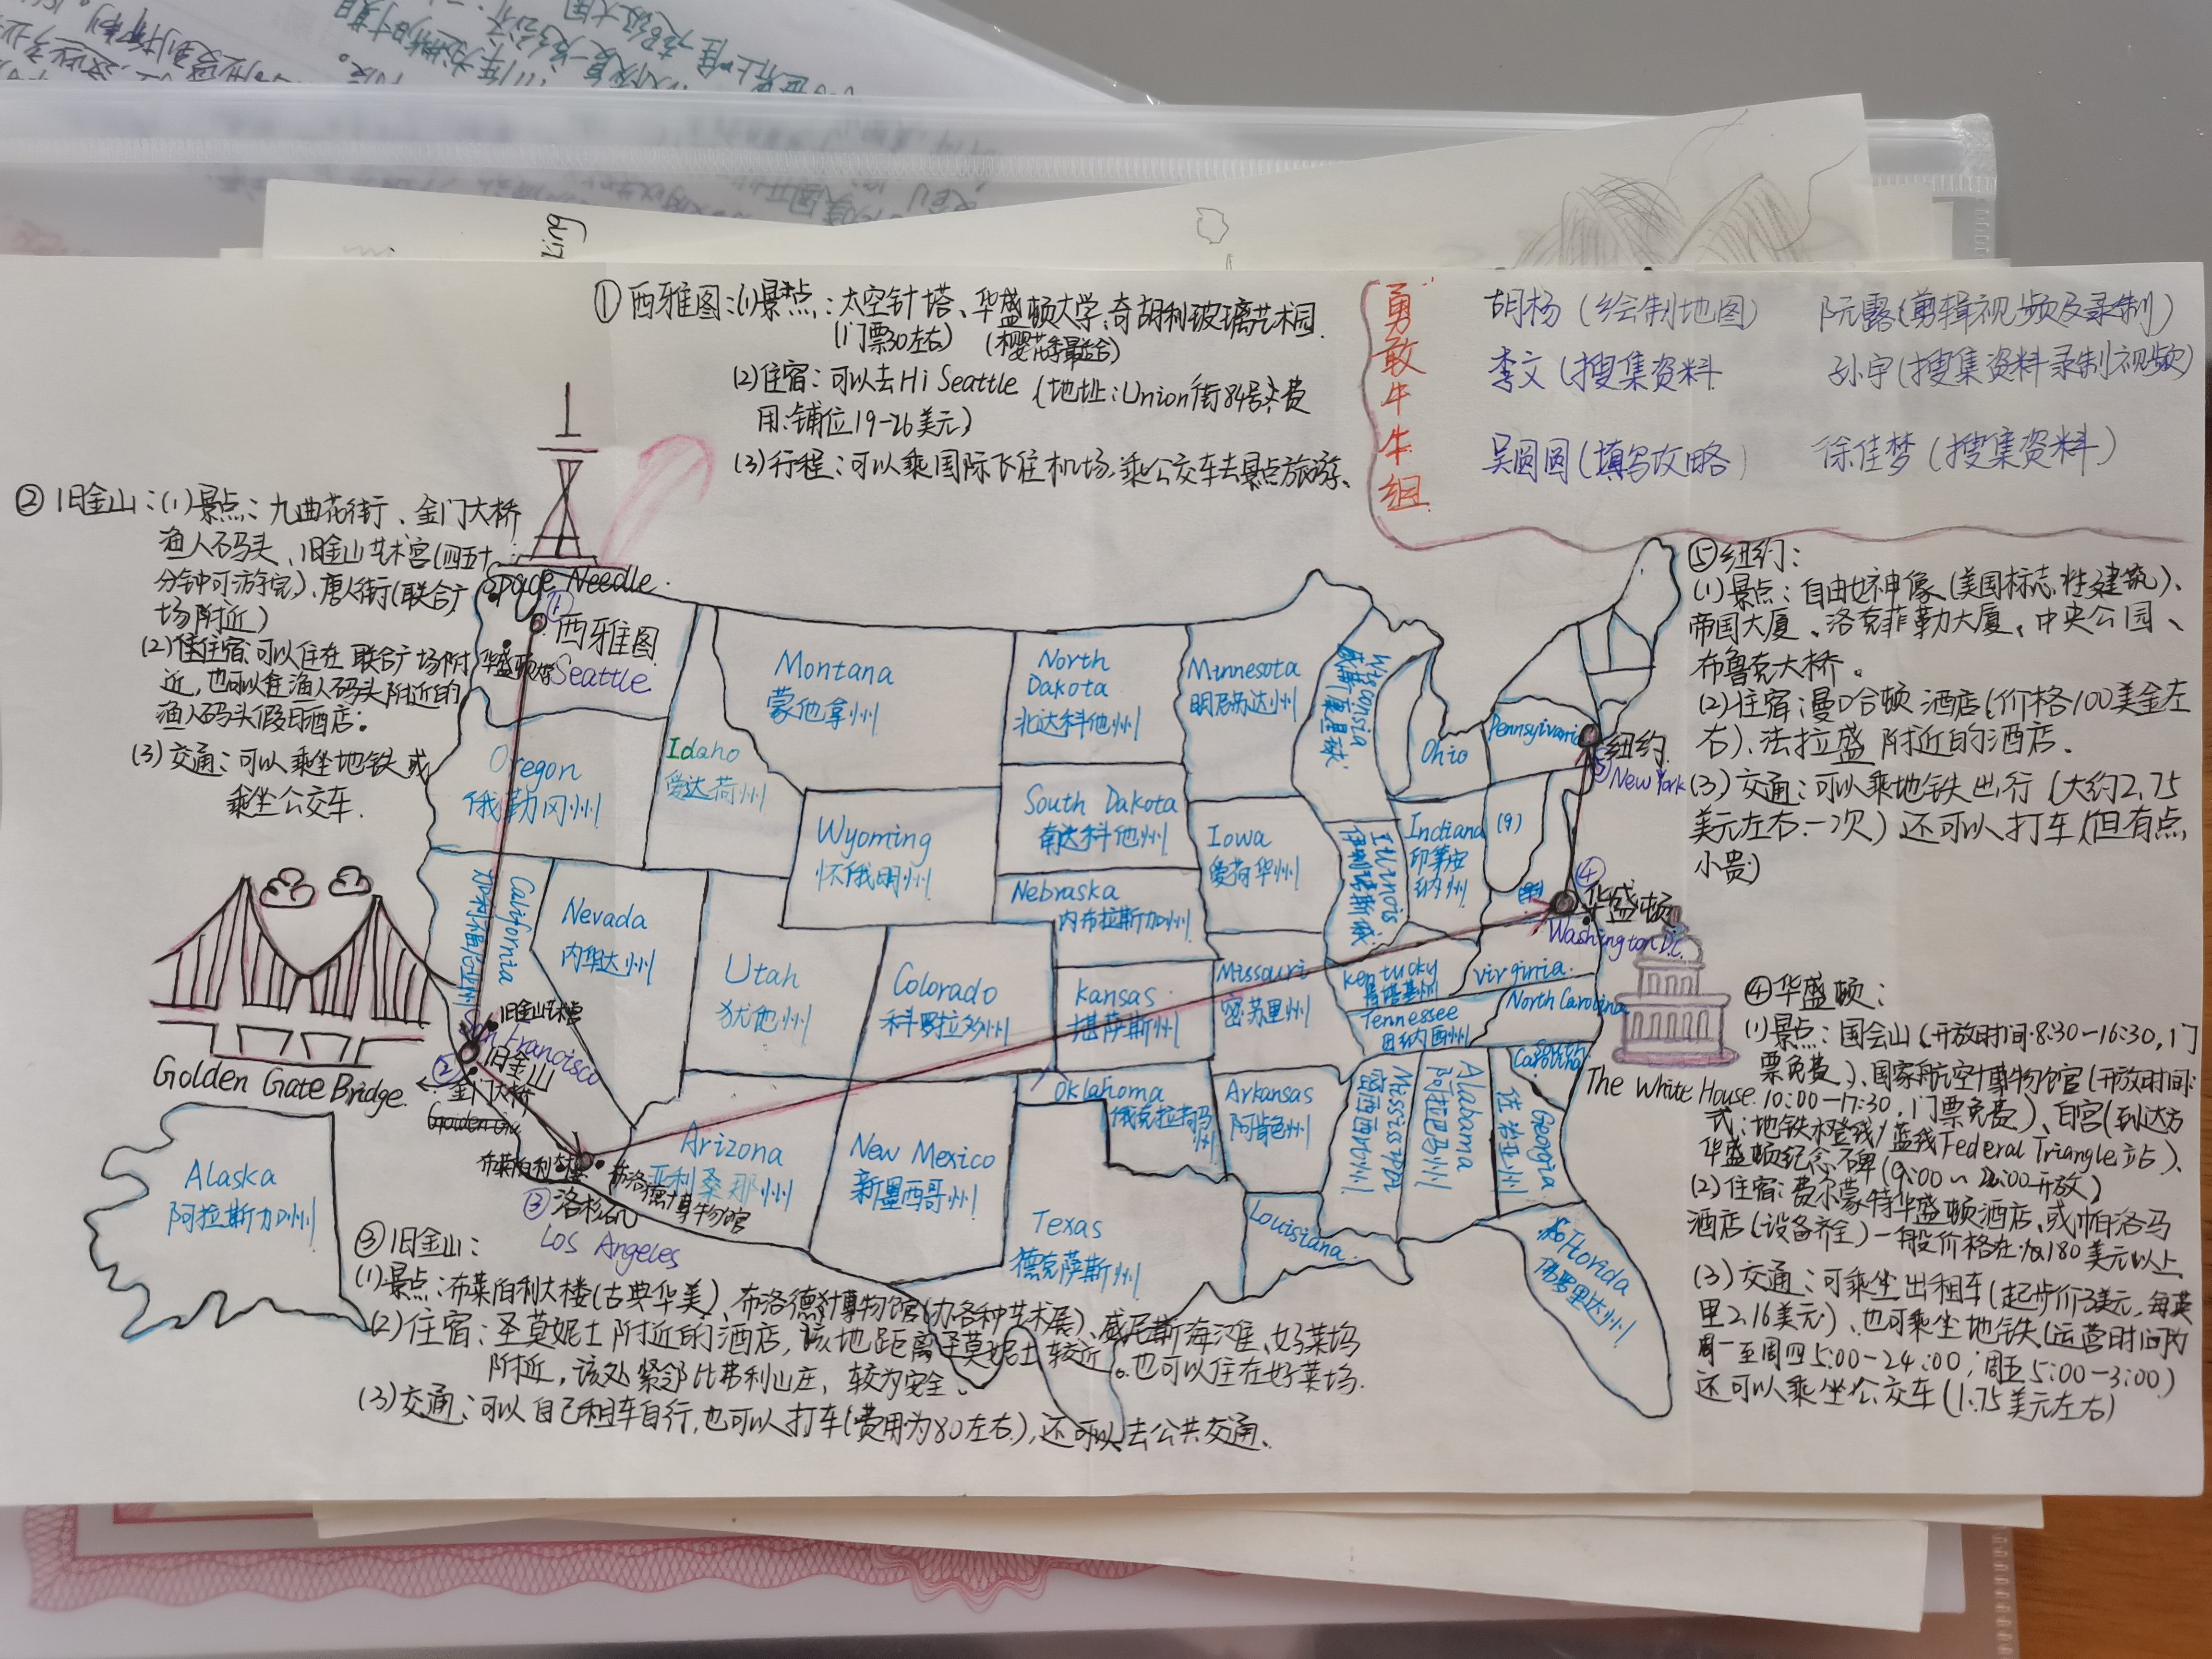 ①西雅图:(1)景点:太空针塔、华盛顿大学、奇胡利玻璃艺术园.
(门票30左右) (樱花季最适合)
(2)住宿:可以去Hi Seattle (地址:Union街84号;费
用:铺位19-26美元)
(3)行程:可以乘国际飞往机场,乘公交车去景点旅游、
勇敢牛牛组
胡杨(绘制地图) 阮露(剪辑视频及录制)
李文(搜集资料 孙宇(搜集资料录制视频)
吴圆圆(填写攻略) 徐佳梦(搜集资料)
②旧金山:(1)景点:九曲花街、金门大桥
渔人码头、旧金山艺术宫(四五十
分钟可游完)、唐人街(联合广
场附近)
(2)住宿:可以住在联合广场附
近,也可以住渔人码头附近的
渔人码头假日酒店。
(3)交通:可以乘坐地铁或
乘坐公交车.
Space Needle.
①
西雅图
Seattle
华盛顿
Montana
蒙他拿州
North
Dakota
北达科他州
Minnesota
明尼苏达州
Wisconsia
Ohio
Pennsylvania
纽约.
⑤New York
Oregon
俄勒冈州
Idaho
爱达荷州
Wyoming
怀俄明州
South Dakota
南达科他州
Iowa
爱荷华州
Illinois
Indiana
印第安
纳州
(9)
Nebraska
内布拉斯加州
California
加利福尼亚州
Nevada
内华达州
Utah
犹他州
Colorado
科罗拉多州
Kansas
堪萨斯州
Missouri
密苏里州
Kentucky
肯塔基州
Virginia.
④
华盛顿
Washington D.C.
Tennessee
田纳西州
North Carolina
South
Carolina
旧金山艺术宫
San Francisco
②旧金山
金门大桥
Golden Gate Bridge.
The White House.
Alaska
阿拉斯加州
布莱伯利大楼
布洛德博物馆
③洛杉矶
Los Angeles
Arizona
亚利桑那州
New Mexico
新墨西哥州
Oklahoma
俄克拉荷马州
Arkansas
阿肯色州
Mississippi
密西西比州
Alabama
阿拉巴马州
Georgia
佐治亚州
Texas
德克萨斯州
Louisiana.
Florida
佛罗里达州
⑤纽约:
(1)景点:自由女神像(美国标志性建筑)、
帝国大厦、洛克菲勒大厦、中央公园、
布鲁克大桥。
(2)住宿:曼哈顿酒店(价格100美金左
右)、法拉盛附近的酒店.
(3)交通:可以乘地铁出行(大约2.75
美元左右一次)还可以打车(但有点
小贵)
④华盛顿:
(1)景点:国会山(开放时间:8:30-16:30,门
票免费)、国家航空博物馆(开放时间:
10:00-17:30,门票免费)、白宫(到达方
式:地铁橙线/蓝线Federal Triangle站)、
华盛顿纪念碑(9:00~22:00开放)
(2)住宿:费尔蒙特华盛顿酒店、或帕洛马
酒店(设备齐全)一般价格在180美元以上
(3)交通:可乘坐出租车(起步价3美元,每英
里2.16美元)、也可乘坐地铁(运营时间为
周一至周四5:00-24:00;周五5:00-3:00)
还可以乘坐公交车(1.75美元左右)
③旧金山:
(1)景点:布莱伯利大楼(古典华美)、布洛德博物馆(办各种艺术展)、威尼斯海滩、好莱坞
(2)住宿:圣莫妮卡附近的酒店,该地距离圣莫妮卡较近。也可以住在好莱坞
附近,该处紧邻比弗利山庄,较为安全。
(3)交通:可以自己租车自行,也可以打车(费用为80左右),还可以去公共交通、